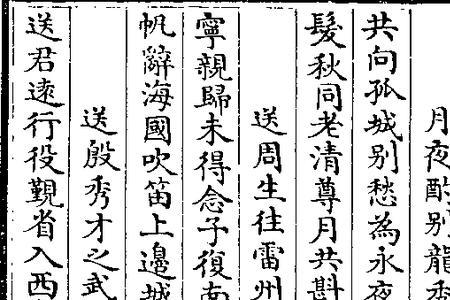 月夜酌别龍
共向孤城别愁為永夜
髮秋同老清尊月共斟
送周生往雷州
寧親歸未得念子復南
帆辭海國吹笛上邊城
送殷秀才之武
送君逺行役覲省入西